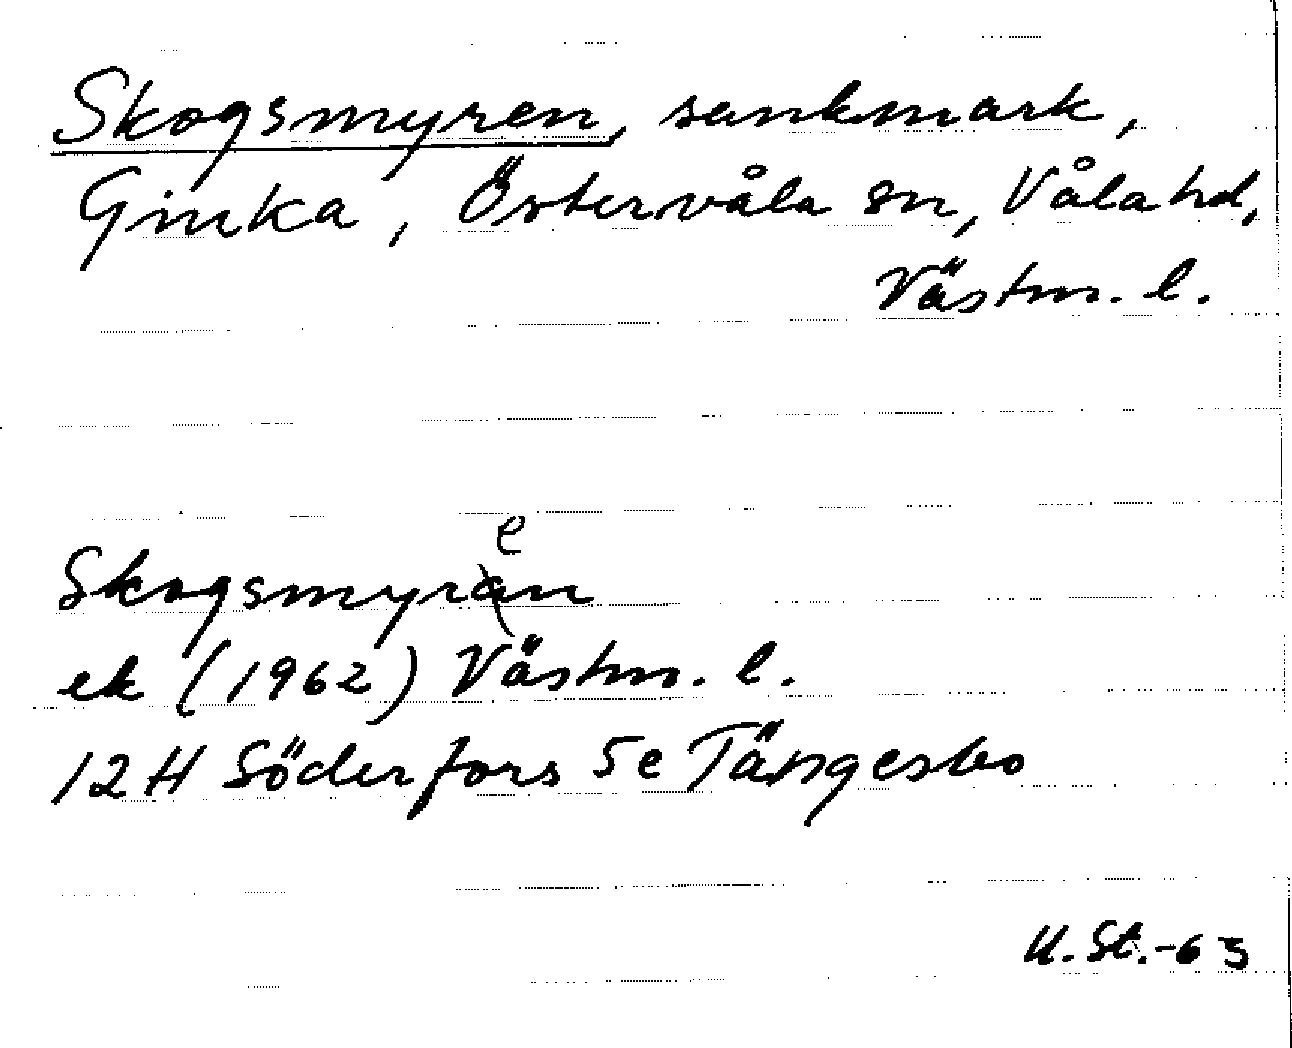 Skogsmyren, sankmark,
Ginka, Östervåla sn, Våla hd,
Västm. l.
e
Skogsmyran
ek (1962) Västm. l.
12H Söderfors 5e Tängesbo
U. St.-63